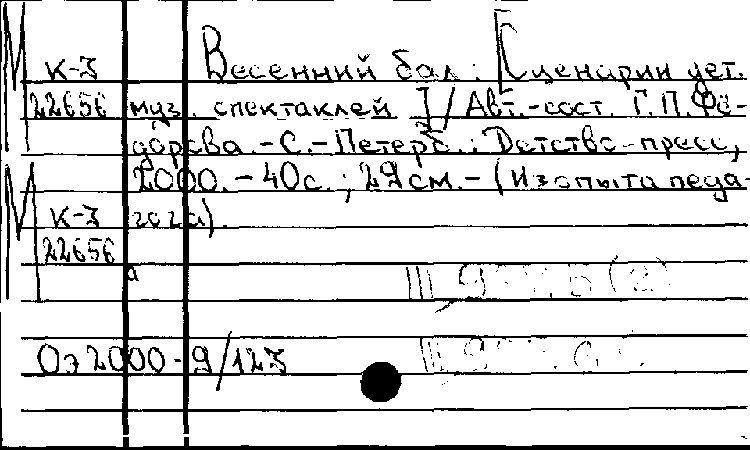 М К-3 Весенний бал: [Сценарии дет.
22656 муз. спектаклей]/Авт.-сост. Г.П.Фё-
дорова.-С.-Петерб.: Детство-пресс,
2000.-40с.; 29см.-(Из опыта педа-
М К-3 гога).
22656
а
Оэ 2000-9/123